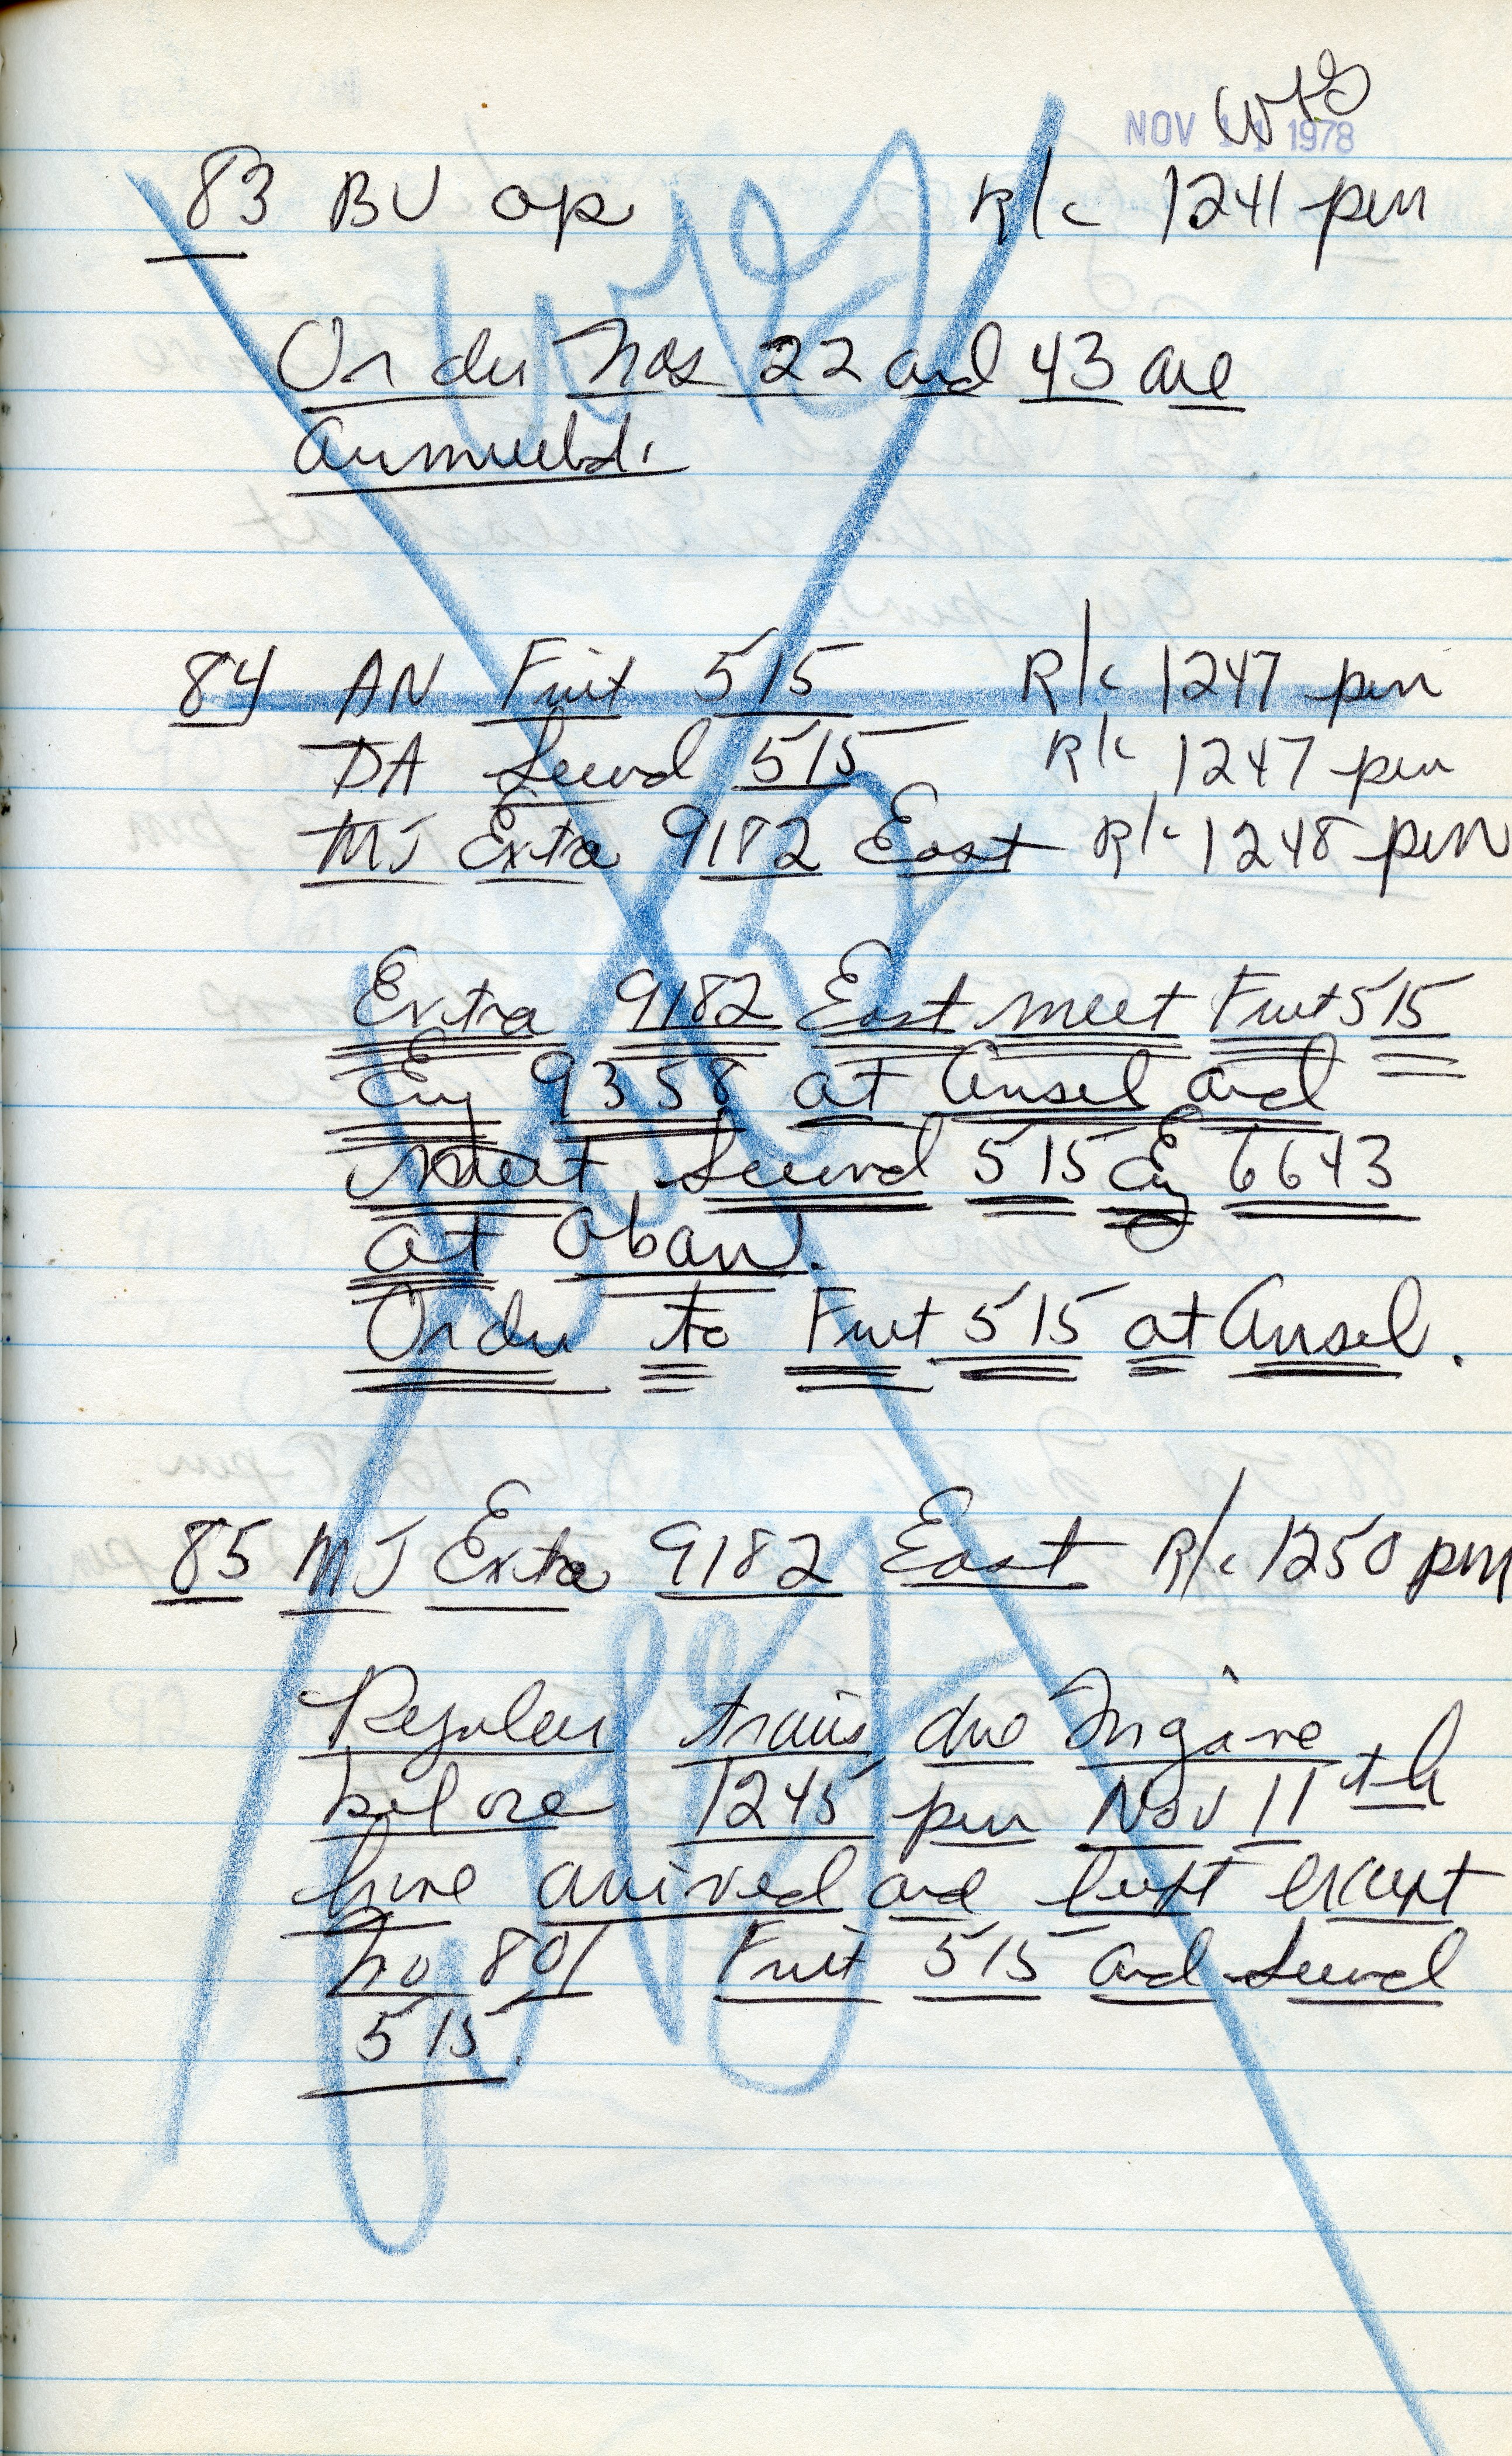 WPG
NOV 11 1978
83 BU op R/c 1241 pm
Order Nos 22 and 43 are
annulled.
84 AN First 515 R/c 1247 pm
DA Second 515 R/c 1247 pm
MJ Extra 9182 East R/c 1248 pm
Extra 9182 East meet First 515
Eng 9358 at Ansel and
meet Second 515 Eng 6643
at Oban.
Order to First 515 at Ansel.
85 MJ Extra 9182 East R/c 1250 pm
Regular trains due Ingave
before 1245 pm Nov 11th
have arrived and left except
No 801 First 515 and Second
515.